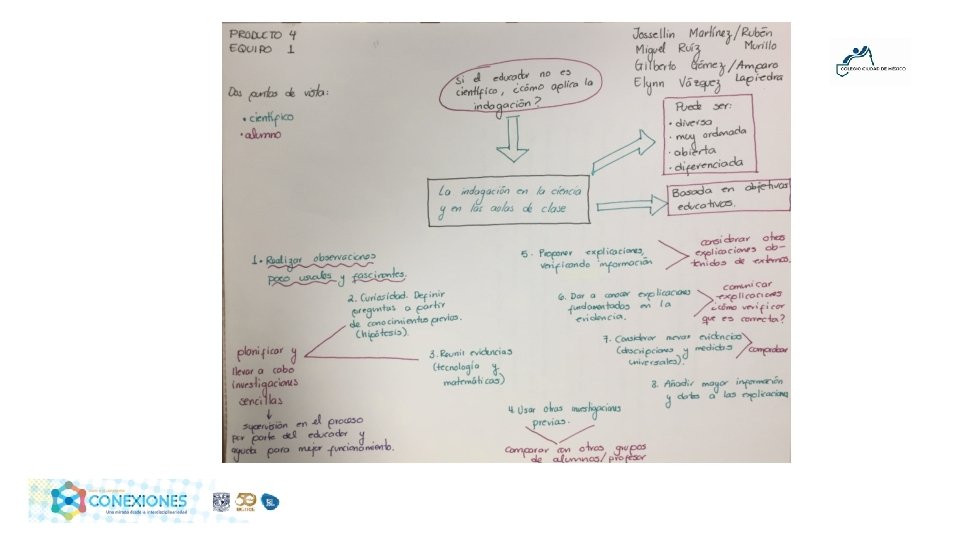 PRODUCTO 4
EQUIPO 1
Jossellin Martínez/Rubén
Miguel Ruíz Murillo
Gilberto Gámez/Amparo
Elynn Vázquez Lapiedra
COLEGIO CIUDAD DE MEXICO
Dos puntos de vista:
• científico
• alumno
Si el educador no es
científico, ¿cómo aplica la
indagación?
Puede ser:
• diversa
• muy ordenada
• abierta
• diferenciada
La indagación en la ciencia
y en las aulas de clase
Basada en objetivos
educativos.
1. Realizar observaciones
poco usuales y fascinantes.
2. Curiosidad. Definir
preguntas a partir
de conocimientos previos.
(hipótesis).
planificar y
llevar a cabo
investigaciones
sencillas
supervisión en el proceso
por parte del educador y
ayuda para mejor funcionamiento.
3. Reunir evidencias
(tecnología y
matemáticas)
4. Usar otras investigaciones
previas.
comparar con otros grupos
de alumnos/profesor
5. Proponer explicaciones,
verificando información
considerar otras
explicaciones ob-
tenidas de externos.
6. Dar a conocer explicaciones
fundamentadas en la
evidencia.
comunicar
explicaciones
¿cómo verificar
que es correcta?
7. Considerar nuevas evidencias
(descripciones y medidas
universales).
comprobar
8. Añadir mayor información
y datos a las explicaciones
CONEXIONES
Una mirada desde la interdisciplinariedad
UNAM
50